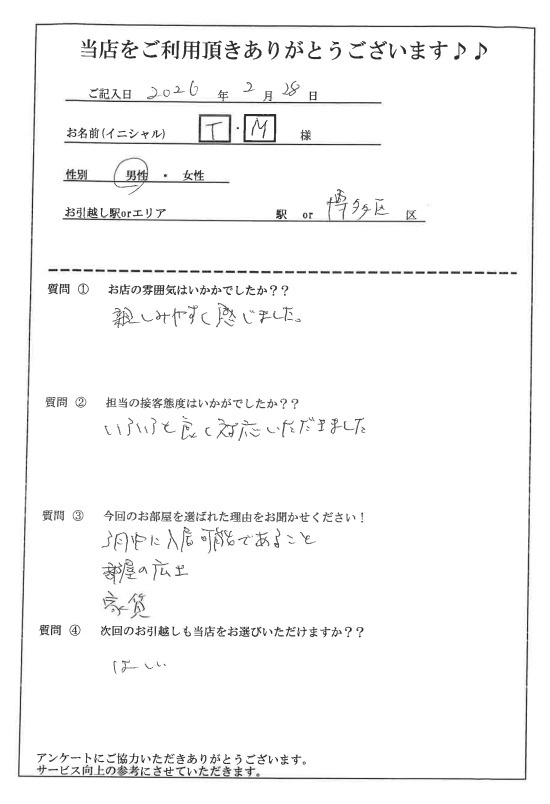 当店をご利用頂きありがとうございます♪♪
ご記入日 2026 年 2 月 28 日
お名前(イニシャル) T ・ M 様
性別 男性 ・ 女性
お引越し駅orエリア 駅 or 博多区 区
質問 ① お店の雰囲気はいかかでしたか??
親しみやすく感じました。
質問 ② 担当の接客態度はいかがでしたか??
いろいろと良く対応いただきました
質問 ③ 今回のお部屋を選ばれた理由をお聞かせください!
3月中に入居可能であること
部屋の広さ
家賃
質問 ④ 次回のお引越しも当店をお選びいただけますか??
はい
アンケートにご協力いただきありがとうございます。
サービス向上の参考にさせていただきます。